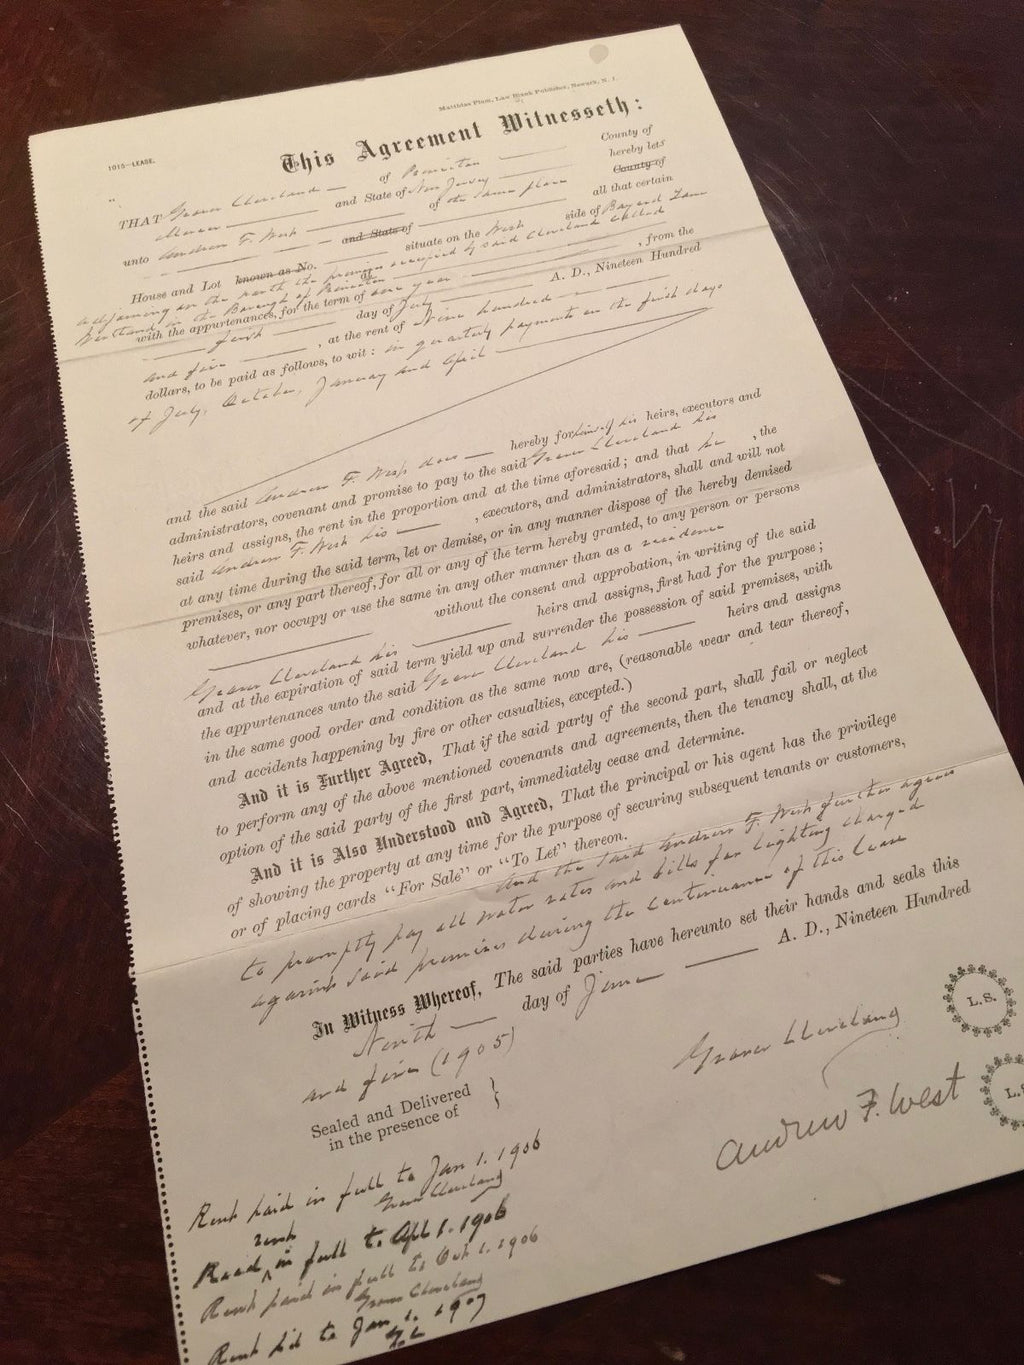 Matthias Plum, Law Blank Publisher, Newark, N. J.
1015—LEASE.
This Agreement Witnesseth:
THAT Grover Cleveland of Princeton County of
Mercer and State of New Jersey hereby lets
unto Andrew F. West of the same place County of
and State of all that certain
House and Lot known as No. situate on the West side of Bayard Lane
adjoining on the north the premises occupied by said Cleveland called
Westland in the Borough of Princeton
with the appurtenances, for the term of one year , from the
first day of July A. D., Nineteen Hundred
and five , at the rent of Nine hundred
dollars, to be paid as follows, to wit: in quarterly payments on the first days
of July, October, January and April
and the said Andrew F. West does hereby for himself his heirs, executors and
administrators, covenant and promise to pay to the said Grover Cleveland his
heirs and assigns, the rent in the proportion and at the time aforesaid; and that he , the
said Andrew F. West his , executors, and administrators, shall and will not
at any time during the said term, let or demise, or in any manner dispose of the hereby demised
premises, or any part thereof, for all or any of the term hereby granted, to any person or persons
whatever, nor occupy or use the same in any other manner than as a residence
without the consent and approbation, in writing of the said
Grover Cleveland his heirs and assigns, first had for the purpose;
and at the expiration of said term yield up and surrender the possession of said premises, with
the appurtenances unto the said Grover Cleveland his heirs and assigns
in the same good order and condition as the same now are, (reasonable wear and tear thereof,
and accidents happening by fire or other casualties, excepted.)
And it is Further Agreed, That if the said party of the second part, shall fail or neglect
to perform any of the above mentioned covenants and agreements, then the tenancy shall, at the
option of the said party of the first part, immediately cease and determine.
And it is Also Understood and Agreed, That the principal or his agent has the privilege
of showing the property at any time for the purpose of securing subsequent tenants or customers,
or of placing cards "For Sale" or "To Let" thereon.
and the said Andrew F. West further agrees
to promptly pay all water rates and bills for lighting charged
against said premises during the continuance of this lease
In Witness Whereof, The said parties have hereunto set their hands and seals this
Ninth day of June A. D., Nineteen Hundred
and five (1905)
Sealed and Delivered
in the presence of
Grover Cleveland L.S.
Andrew F. West L.S.
Rent paid in full to Jan 1. 1906
Grover Cleveland
rent
in full to Apl 1. 1906
Rent paid in full to Oct 1. 1906
Grover Cleveland
Rent pd to Jan. 1. 1907
G. C.